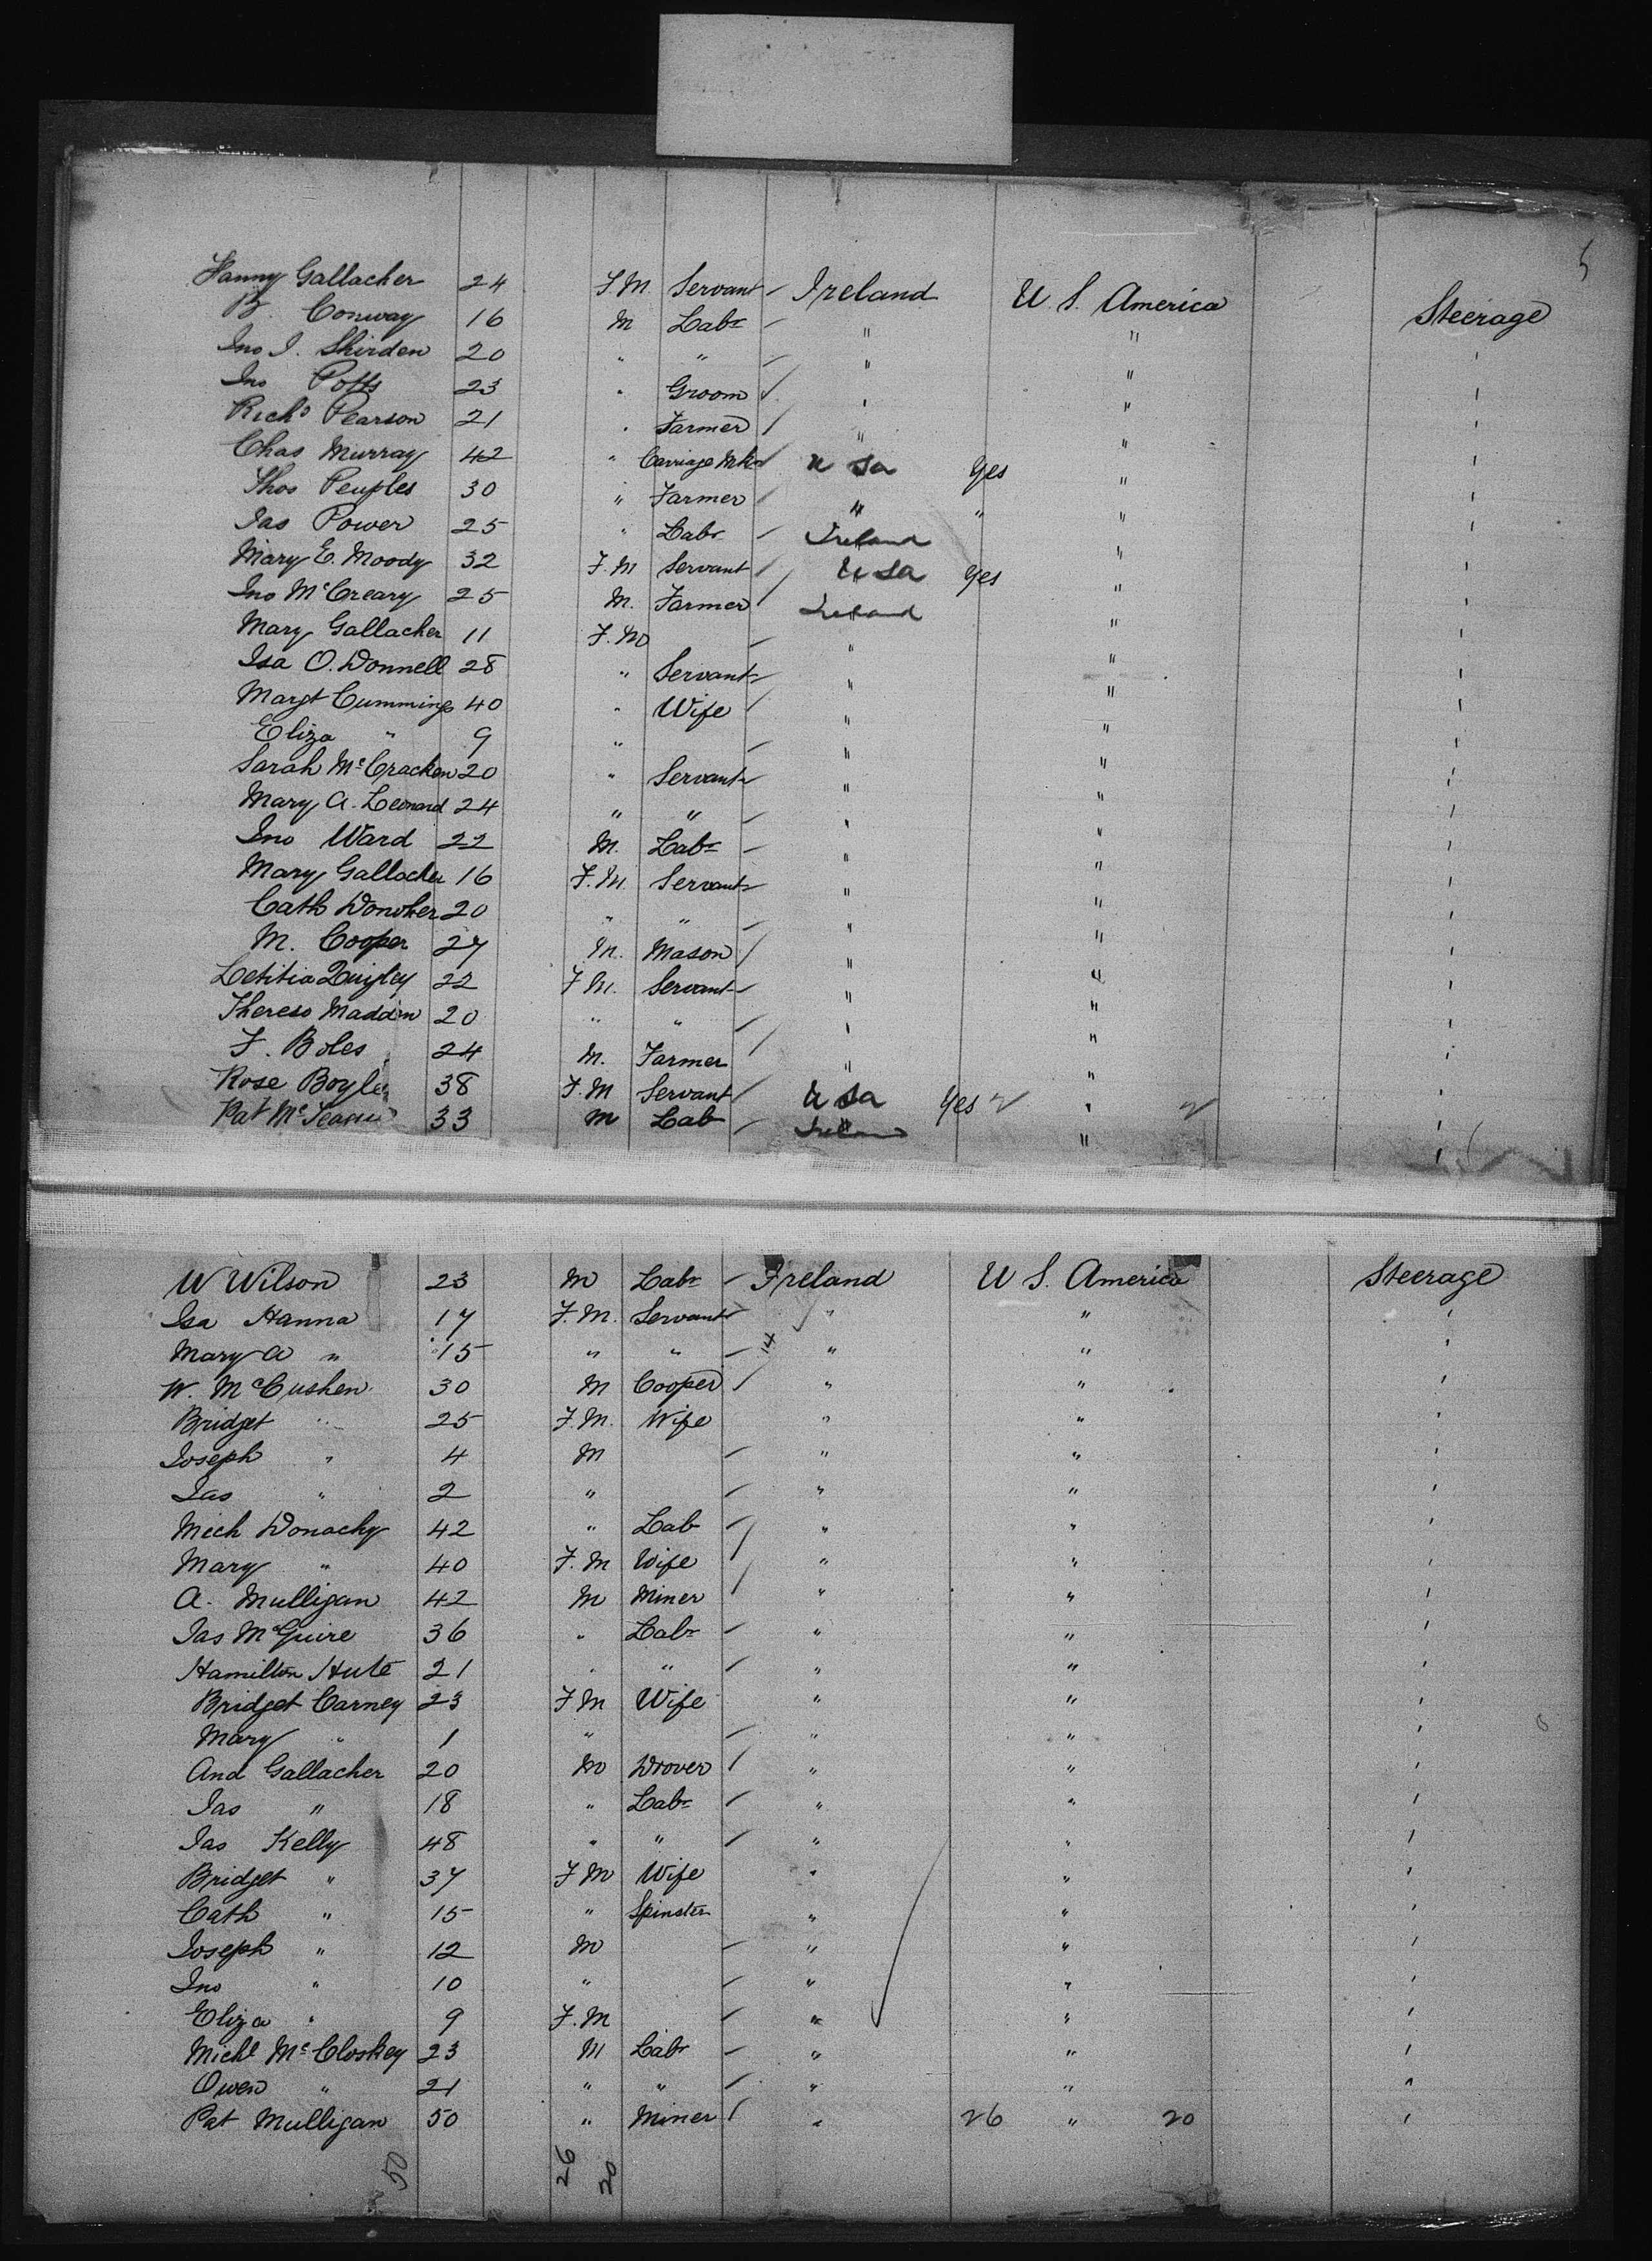 5
Fanny Gallacher 24 F.M. Servant Ireland U. S. America Steerage
B. Conway 16 M Labr " " "
Jno J. Shirden 20 " " " " "
Jno Potts 23 " Groom " " "
Richd Pearson 21 " Farmer " " "
Chas Murray 42 " Carriage Mkr U Sa Yes " "
Thos Peuples 30 " Farmer " " " "
Jas Power 25 " Labr Ireland " "
Mary E. Moody 32 F.M Servant U Sa Yes " "
Jno McCreary 25 M. Farmer Ireland " "
Mary Gallacher 11 F.M " " "
Isa O.Donnell 28 " Servant " " "
Margt Cummings 40 " Wife " " "
Eliza " 9 " " " "
Sarah McCracken 20 " Servant " " "
Mary A. Leonard 24 " " " " "
Jno Ward 22 M. Labr " " "
Mary Gallacher 16 F.M. Servant " " "
Cath Donoher 20 " " " " "
M. Cooper 27 M. Mason " " "
Letitia Quigley 22 F M. Servant " " "
Theresa Madden 20 " " " " "
F. Boles 24 M. Farmer " " "
Rose Boyle 38 F.M Servant U Sa Yes " "
Pat Mc 33 M Lab Ireland " "
W Wilson 23 M Labr Ireland U S. America Steerage
Isa Hanna 17 F.M. Servant " " "
Mary A " 15 " " 14 " " "
W. McCushen 30 M Cooper " " "
Bridget " 25 F.M. Wife " " "
Joseph " 4 M " " "
Jas " 2 " " " "
Mich Donachy 42 " Lab " " "
Mary " 40 F.M Wife " " "
A. Mulligan 42 M Miner " " "
Jas McGuire 36 " Labr " " "
Hamilton Hute 21 " " " " "
Bridget Carney 23 F M Wife " " "
Mary " 1 " " " "
And Gallacher 20 M Drover " " "
Jas " 18 " Labr " " "
Jas Kelly 48 " " " " "
Bridget " 37 F M Wife " " "
Cath " 15 " Spinster " " "
Joseph " 12 M " " "
Jno " 10 " " " "
Eliza " 9 F.M " " "
Michl McCloskey 23 M Labr " " "
Owen " 21 " " " " "
Pat Mulligan 50 " Miner " 26 " 20 "
50 26 20